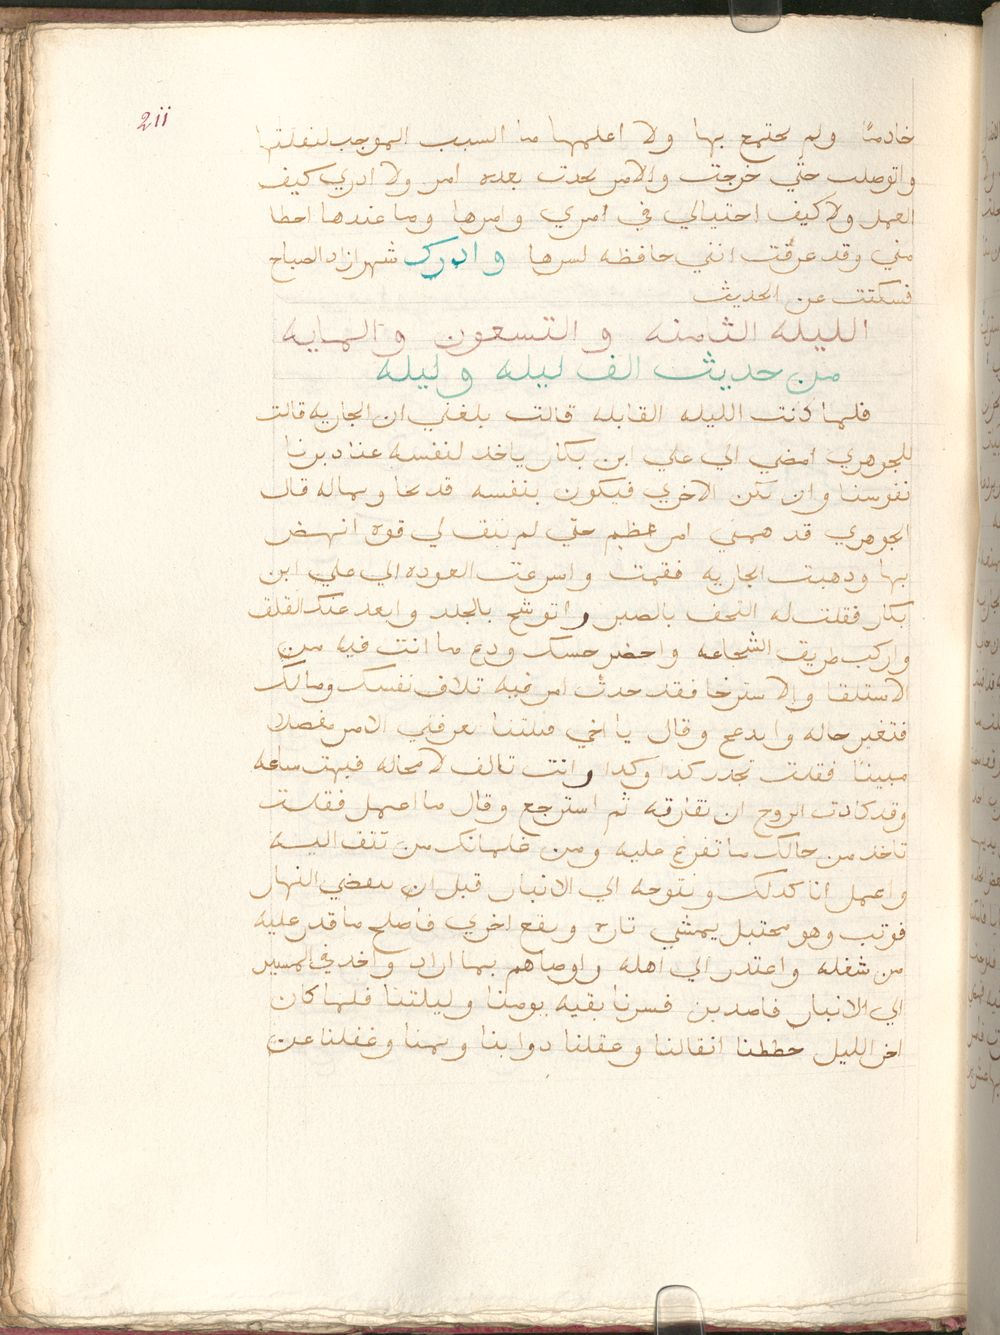 211
خادمًا ولم يجتمع بها ولا اعلمها ما السبب الموجب لنقلتها
واتوصلت حتي خرجت والامر يحدث بعده امر ولا ادري كيف
العمل ولا كيف احتيالي في امري وامرها وما عندها احظا
مني وقد عرفت انني حافظه لسرها وادرك شهرازاد الصباح
فسكتت عن الحديث
الليله الثامنه والتسعون والمايه
من حديث الف ليله وليله
فلما كانت الليله القابله قالت بلغني ان الجاريه قالت
للجوهري امضي الي علي ابن بكار ياخد لنفسه عنا دبرنا
نفوسنا وان تكن الاخري فيكون بنفسه قد نجا وبماله قال
الجوهري قد همني امر عظيم حتي لم تبق لي قوه انهض
بها ودهبت الجاريه فقمت واسرعت العوده الي علي ابن
بكار فقلت له التحف بالصبر واتوشح بالجلد وابعد عنك القلق
واركب طريق الشجاعه واحضر حسك ودع ما انت فيه من
الاستلقا والاسترخا فقد حدث امر فيه تلاف نفسك ومالك
فتغير حاله وانزعج وقال يا اخي قتلتنا عرفني الامر مفصلا
مبينًا فقلت تجدر كدا وكدا وانت تالف لا محاله فبهت ساعه
وقد كادت الروح ان تفارقه ثم استرجع وقال ما اعمل فقلت
تاخد من حالك ما تفرغ عليه ومن غلمانك من تثق اليه
واعمل انا كدلك ونتوجه الي الانبار قبل ان ينقضي النهار
فوتب وهو مختبل يمشي تاره ويقع اخري فاصلح ما قدر عليه
من شغله واعتدر الي اهله واوصاهم بما اراد واخد في المسير
الي الانبار قاصدين فسرنا بقيه يومنا وليلتنا فلما كان
اخر الليل حططنا اثقالنا وعقلنا دوابنا ونمنا وغفلنا عن